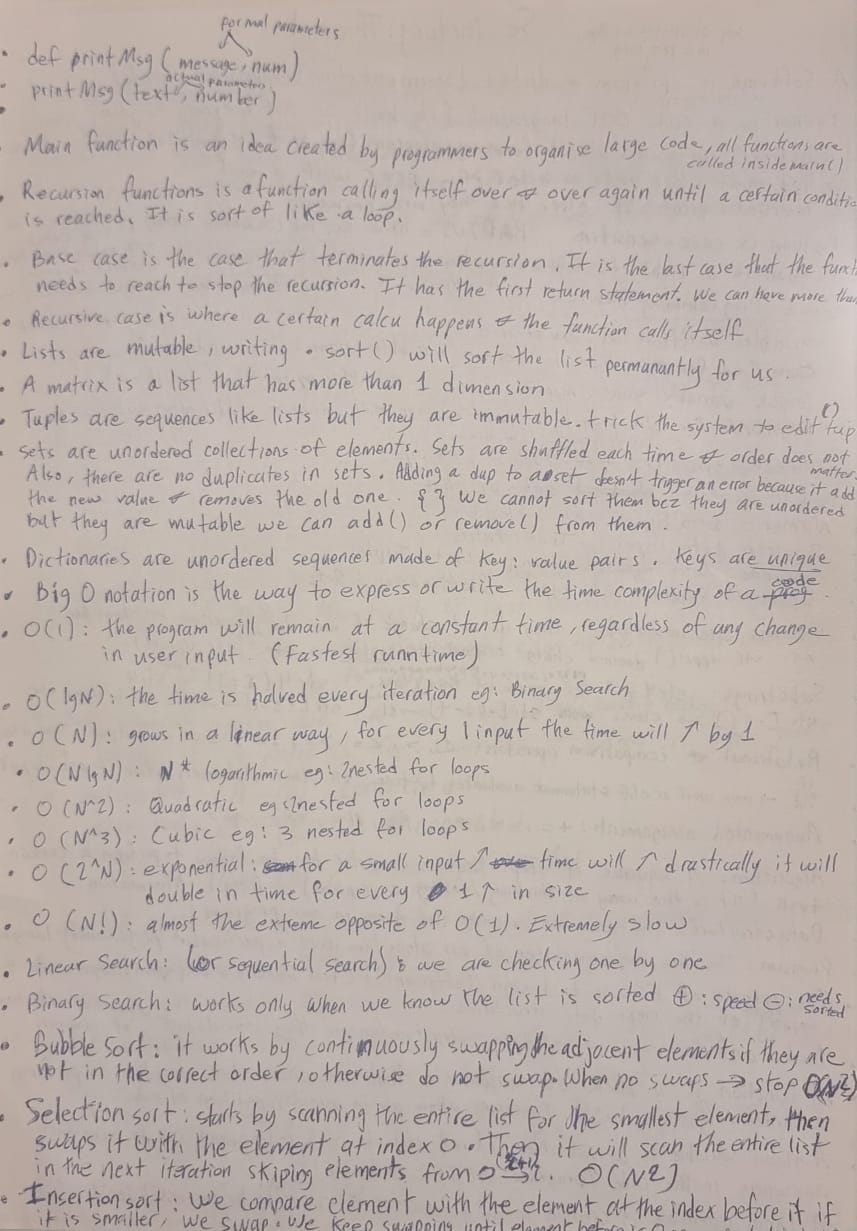 formal parameters
• def printMsg (message, num)
actual parameters
• printMsg (text, number)
• Main function is an idea created by programmers to organise large code, all functions are
called inside main()
• Recursion functions is a function calling itself over & over again until a certain conditio
is reached. It is sort of like a loop.
• Base case is the case that terminates the recursion. It is the last case that the funct
needs to reach to stop the recursion. It has the first return statement. We can have more than
• Recursive case is where a certain calcu happens & the function calls itself
• Lists are mutable, writing .sort() will sort the list permanantly for us.
• A matrix is a list that has more than 1 dimension
()
• Tuples are sequences like lists but they are immutable. trick the system to edit tup
• Sets are unordered collections of elements. Sets are shuffled each time & order does not
matter.
Also, there are no duplicates in sets. Adding a dup to a set doesn't trigger an error because it add
the new value & removes the old one. {} We cannot sort them bcz they are unordered
but they are mutable we can add() or remove() from them.
• Dictionaries are unordered sequences made of key: value pairs. Keys are unique
• Big O notation is the way to express or write the time complexity of a code.
• O(1): the program will remain at a constant time, regardless of any change
in user input. (Fastest runntime)
• O(lgN): the time is halved every iteration eg: Binary Search
• O(N): grows in a linear way, for every 1 input the time will ↑ by 1
• O(N lgN): N* logarithmic eg: 2nested for loops
• O(N^2): Quadratic eg: 2nested for loops
• O(N^3): Cubic eg: 3 nested for loops
• O(2^N): exponential: for a small input ↑ time will ↑ drastically it will
double in time for every 1 ↑ in size
• O(N!): almost the extreme opposite of O(1). Extremely slow
• Linear Search: (or sequential search): we are checking one by one
• Binary Search: works only when we know the list is sorted ⊕: speed ⊖: needs
sorted
• Bubble Sort: it works by continuously swapping the adjacent elements if they are
not in the correct order, otherwise do not swap. When no swaps → stop O(N^2)
• Selection sort: starts by scanning the entire list for the smallest element, then
swaps it with the element at index 0. Then it will scan the entire list
in the next iteration skiping elements from 0 → i. O(N2)
• Insertion sort: We compare element with the element at the index before it if
it is smaller, we swap. We keep swapping until element before is